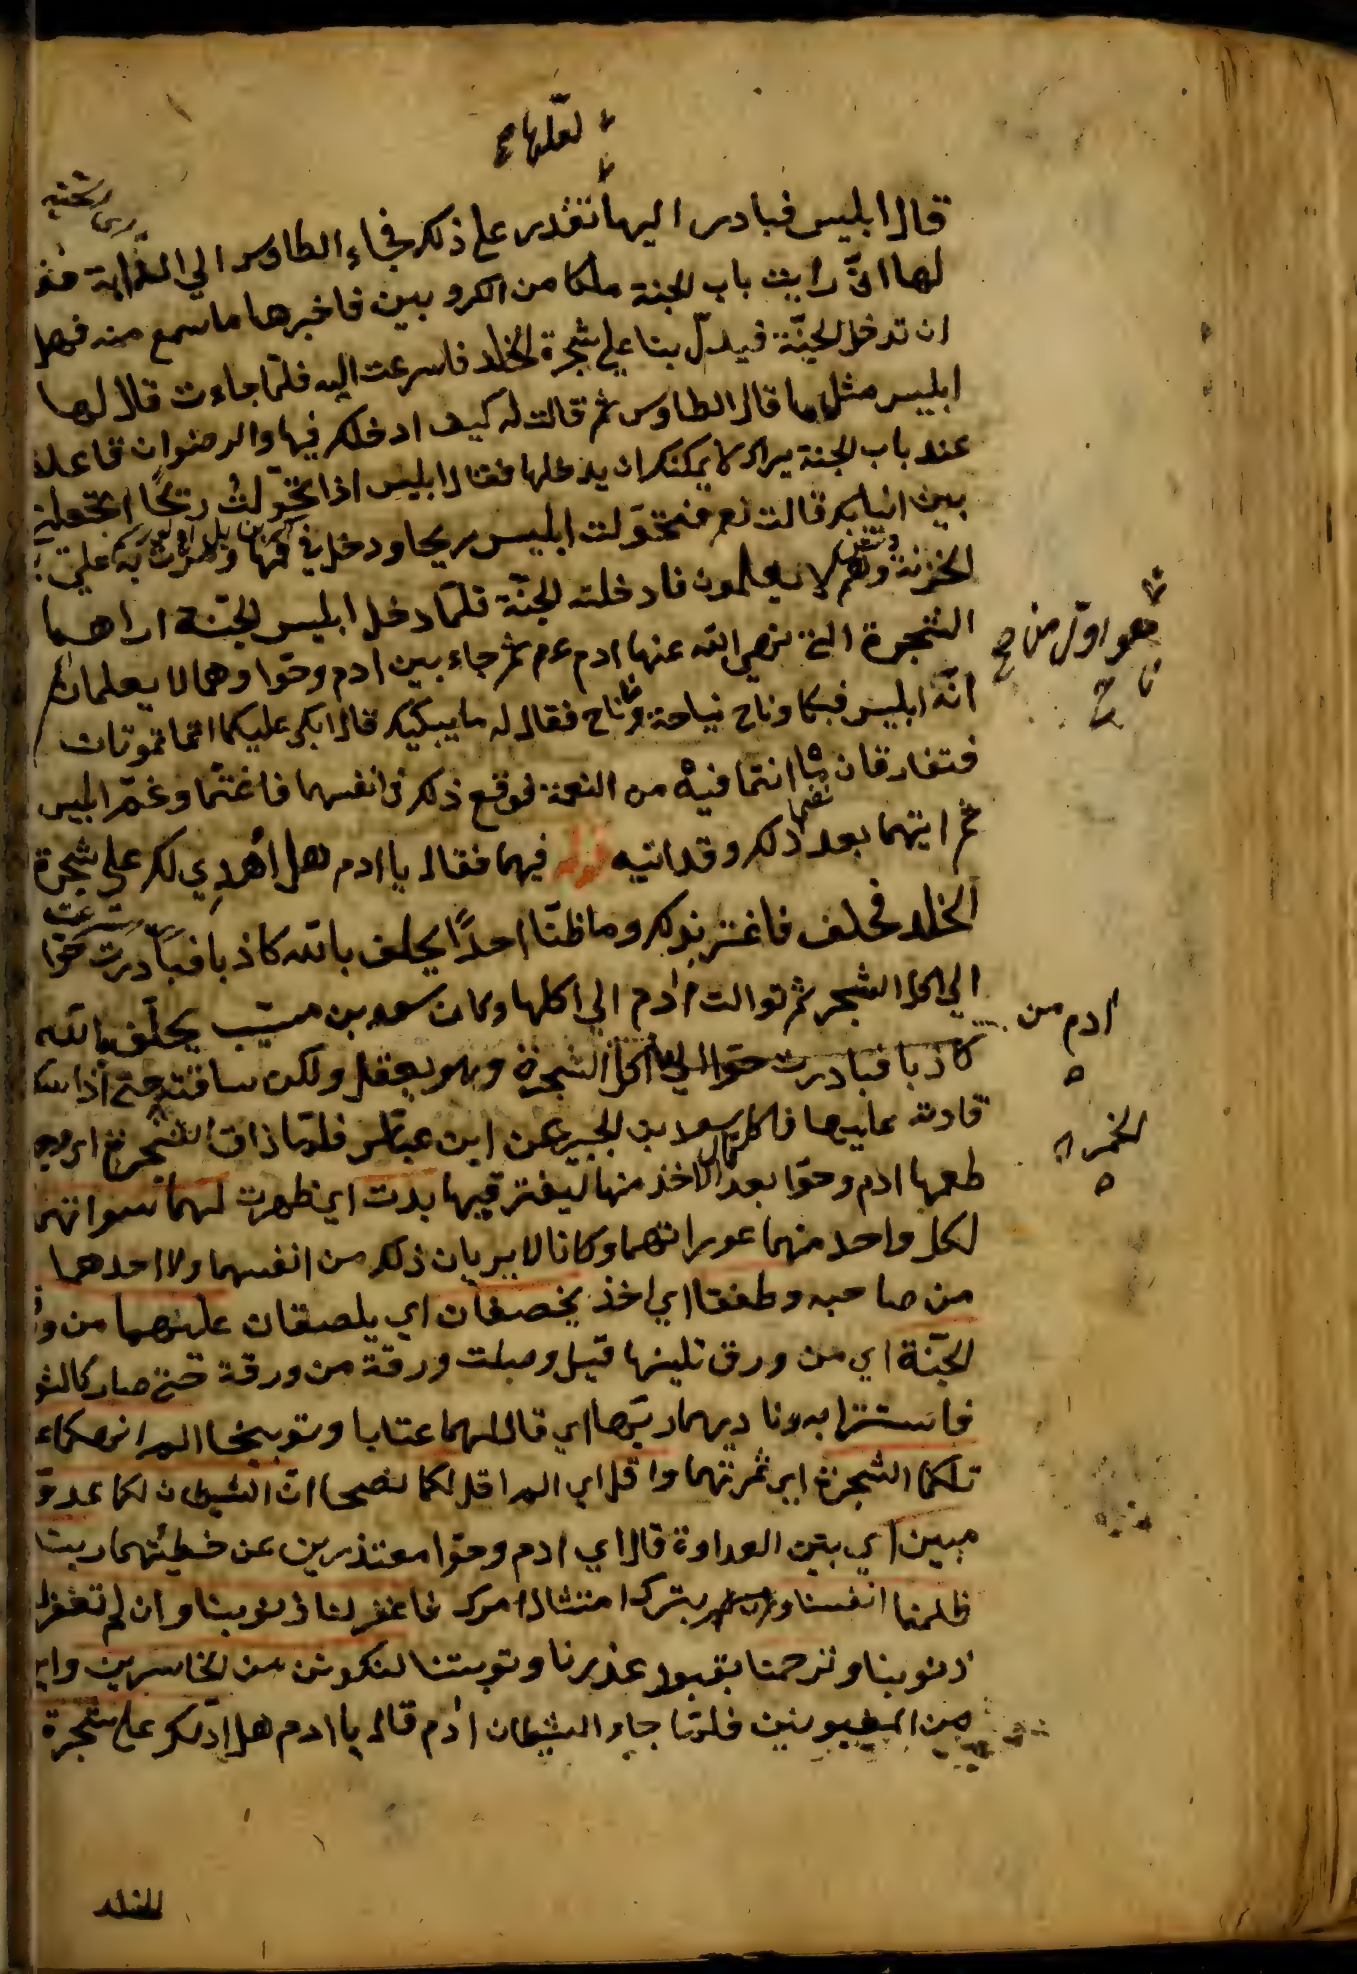 لعلها صح
قال ابليس فبادر اليها تقدر على ذلك فجاء الطاوس الي
لها انّي رايت باب الجنة ملكا من الكروبين فاخبرها ما سمع منه فهل
ان تدخل الجنّة فيدلّ بنا علي شجرة الخلد فاسرعت اليه فلمّا جاءت قال لها
ابليس مثل ما قال الطاوس ثم قالت له كيف ادخلك فيها والرضوان قاعد
عند باب الجنة يراك لا يمكنك ان يدخلها فقال ابليس اذا تحوّلتُ ريحًا اتجعلني
بين انيابك قالت نعم فتحوّلت ابليس ريحا ودخل في فمها ومرّت به علي
الخزنة وهم لا يعلمون فادخلته الجنّة فلمّا دخل ابليس الجنّة اراهما
الشجرة التي نهي الله عنها ادم عم ثم جاء بين ادم وحوّا وهما لا يعلمان
انّه ابليس فبكا وناح نياحة وناح فقال له ما يبكيك قال ابكي عليكما انتما تموتان
هو اوّل من
ناح صح
فتفارقان ما انتما فيه من النعمة فوقع ذلك في انفسهما فاغتمّا وغمّ ابليس
ثم اتيهما بعد ذلك وقد اتيه فيهما فقال يا ادم هل أهدِي لك علي شجرة
الخلد فحلف فاغتر بذلك وما ظنّا احدًا يحلف بالله كاذبا فبادرت حوّا
الي اكل الشجر ثم توالت ادم الي اكلها وكان سعيد بن مسيّب يحلّف بالله
ادم من
كاذبا فبادرت حوّا الي اكل الشجرة وهو يعقل ولكن ساقته حتي اذا
الخمر
قادته عليها فاكل قال سعيد بن الجبير عن ابن عبّاس فلمّا ذاق الشجرة اي
طعمها ادم وحوّا بعد الاخذ منها ليغتر فيها بدت اي ظهرت لهما سواتهما
لكل واحد منهما عوراتهما وكانا لا يريان ذلك من انفسهما ولا احدهما
من صاحبه وطفقا اي اخذ يخصفان اي يلصقان عليهما من
الجنّة اي من ورق تلينها قيل وصلت ورقة من ورقة حتي صار
فاستترا به وناديهما ربّهما اي قال لهما عتابا وتوبيخا الم انهكما
تلكما الشجرة اي ثمرتهما واقل اي الم اقل لكما نصحا انّ الشيطان لكما عدوّ
مبين اي بيّن العداوة قالا اي ادم وحوّا معتذرين عن خطيئتهما ربنا
ظلمنا انفسنا بترك امتثال امرك فاغفر لنا ذنوبنا وان لم تغفر
ذنوبنا وترحمنا بقبول عذرنا وتوبتنا لنكونن من الخاسرين
من المغبونين فلمّا جاء الشيطان ادم قال يا ادم هل ادلّك علي شجرة
الخلد